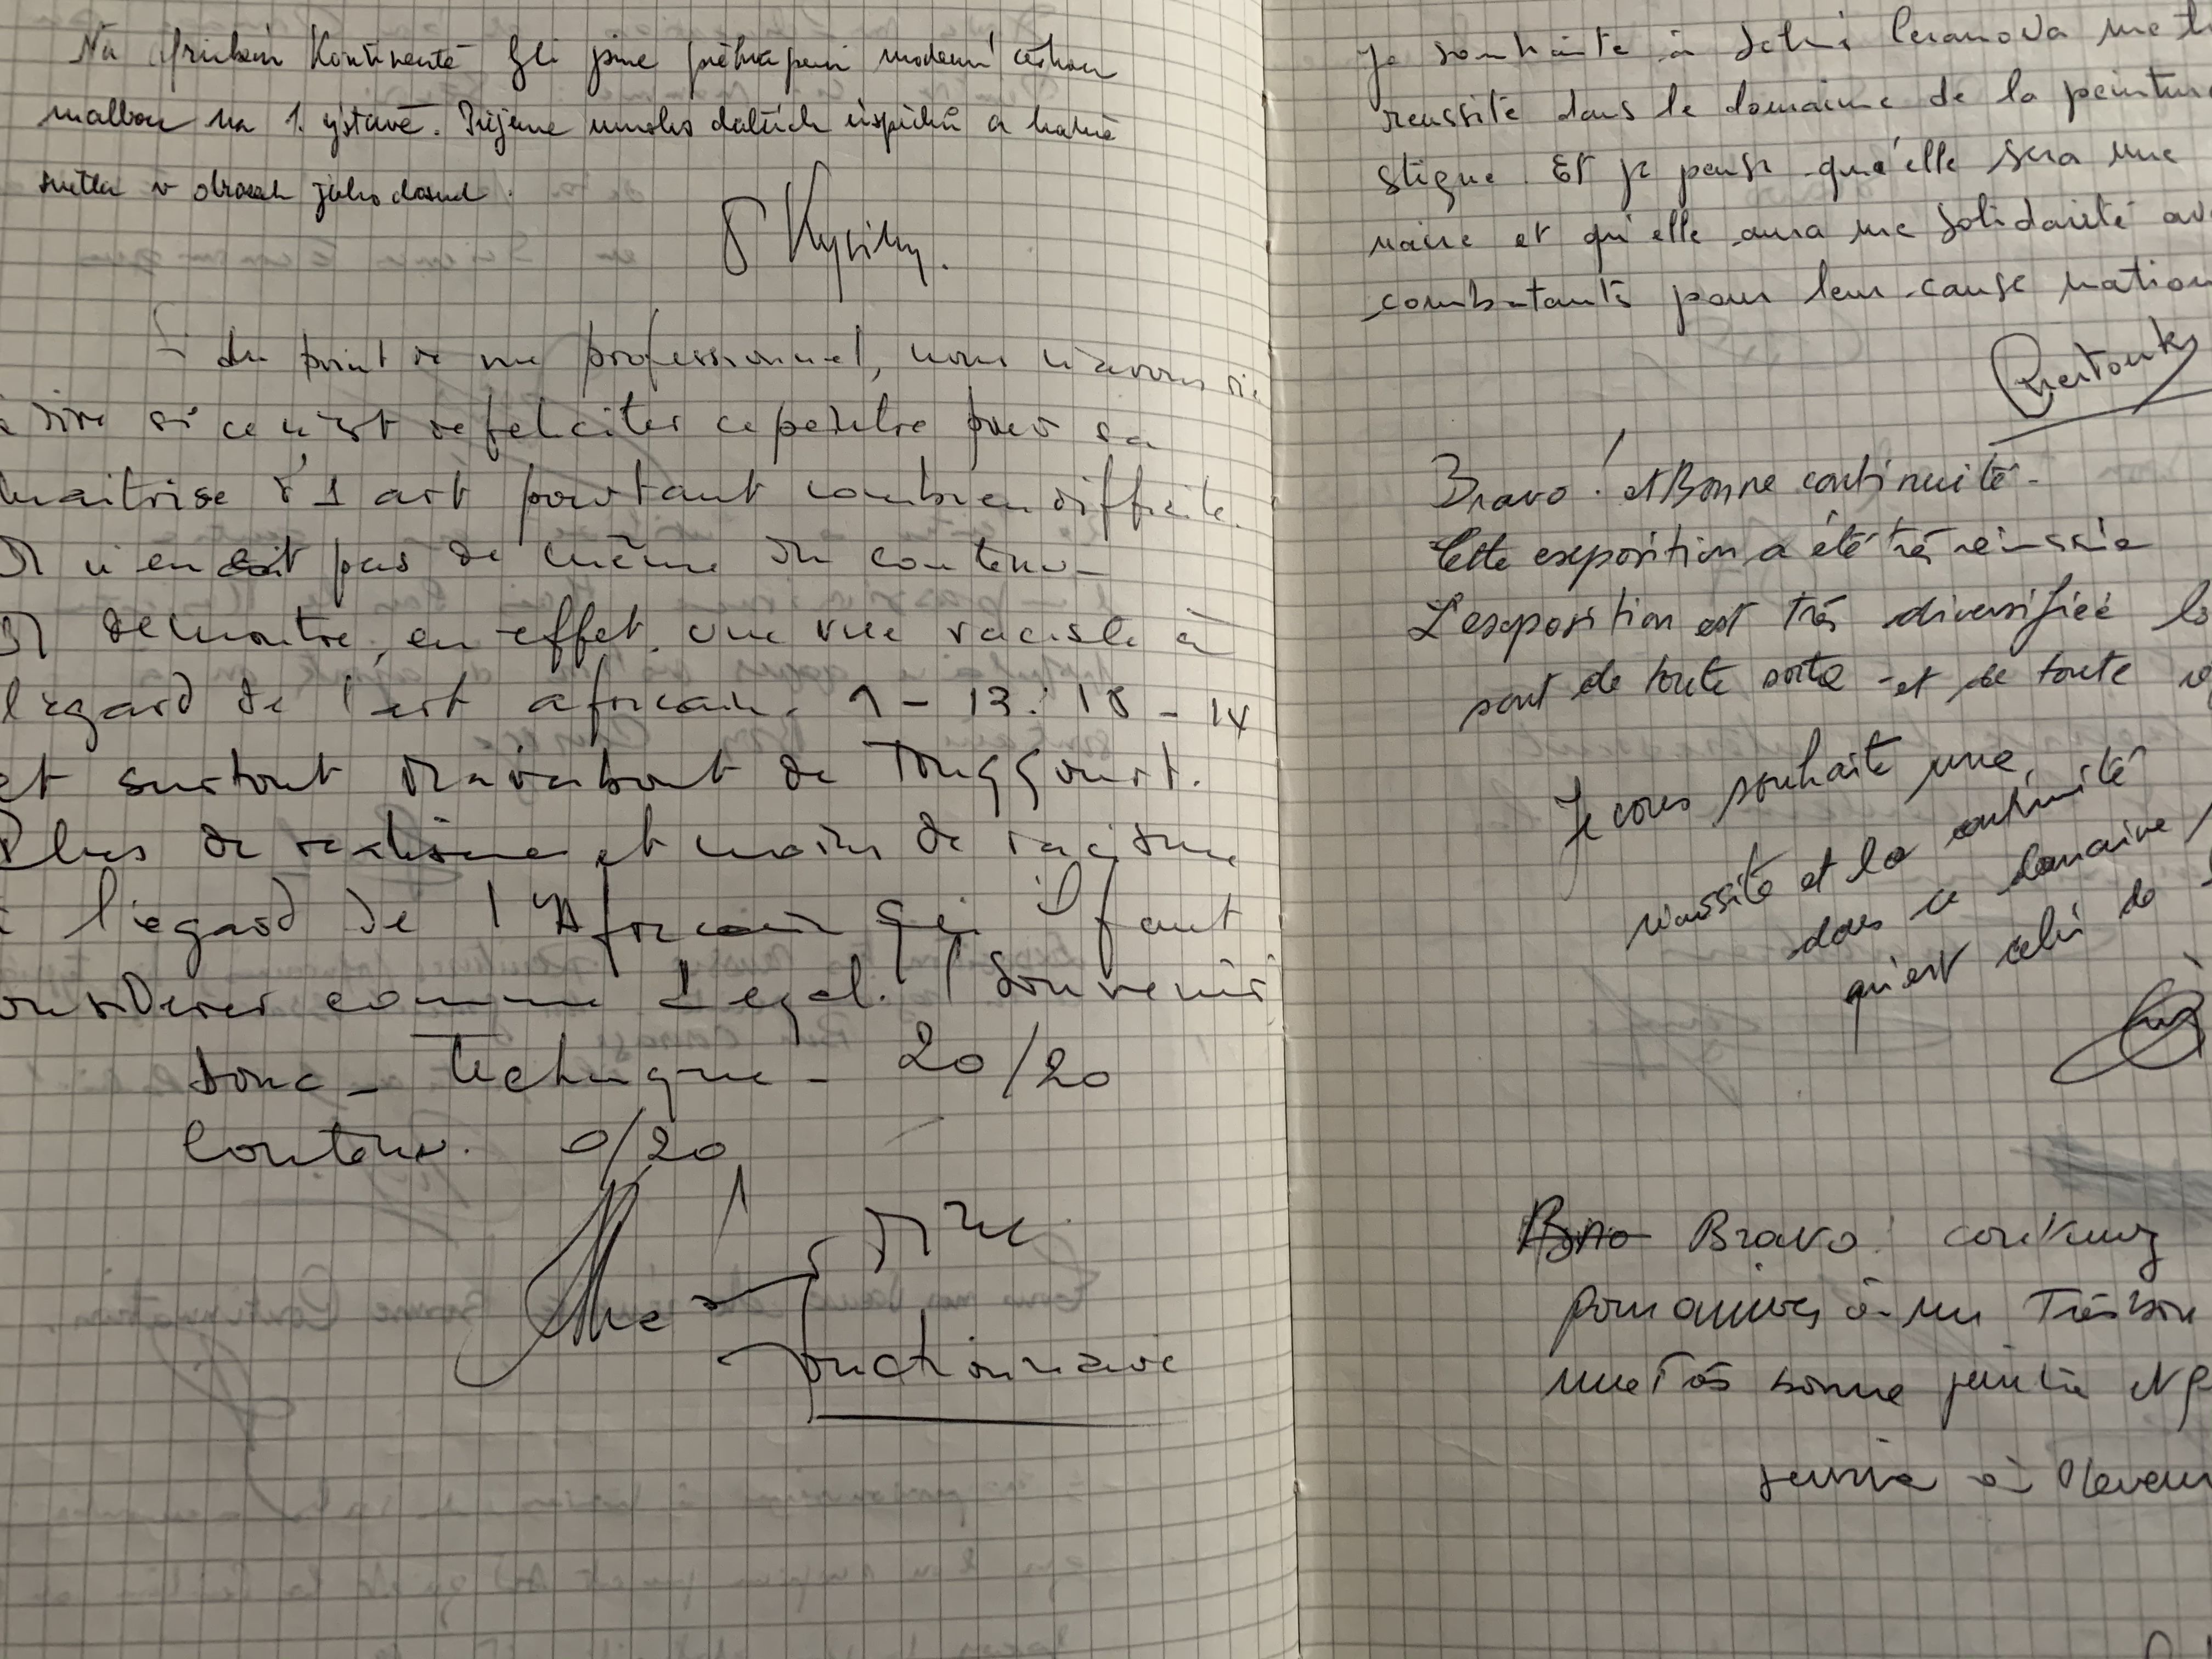 Na africkém kontinentě byli jsme překvapeni moderní českou
malbou na 1. výstavě. Přejeme mnoho dalších úspěchů a hodně
světla v obrazech jako dosud.
Si du point de vue professionnel, nous n'avons rie
à dire si ce n'est de feliciter ce peintre pour sa
maitrise d'1 art pourtant combien difficile.
Il n'en est pas de même du contenu
Il demontre, en effet, une vue raciste à
l'egard de l'est africain. 1 - 13: 18 - 14
et surtout marabout de Touggourt.
Plus de réalisme et moins de racisme
à l'égard de l'Africain qu'il faut
considerer comme 1 egal. (Souvenir
Donc - Technique - 20/20
Contenu. 0/20
Fonctionnaire
Je souhaite à une
reussité dans le domaine de la peinture
stique. Et je pense qu'elle sera une
naire et qu'elle aura une solidarité av
combatants pour leur cause nation
Bravo! et Bonne continuité -
Cette exposition a été trés réussie
L'exposition est trés diversifiée
sont de toute sorte et de toute
Je vous souhaite une
réussite et la continuité
dans ce domaine
qu'est celui de
Bravo! continuez
pour arriver à un Trés bon
une Trés bonne peintre